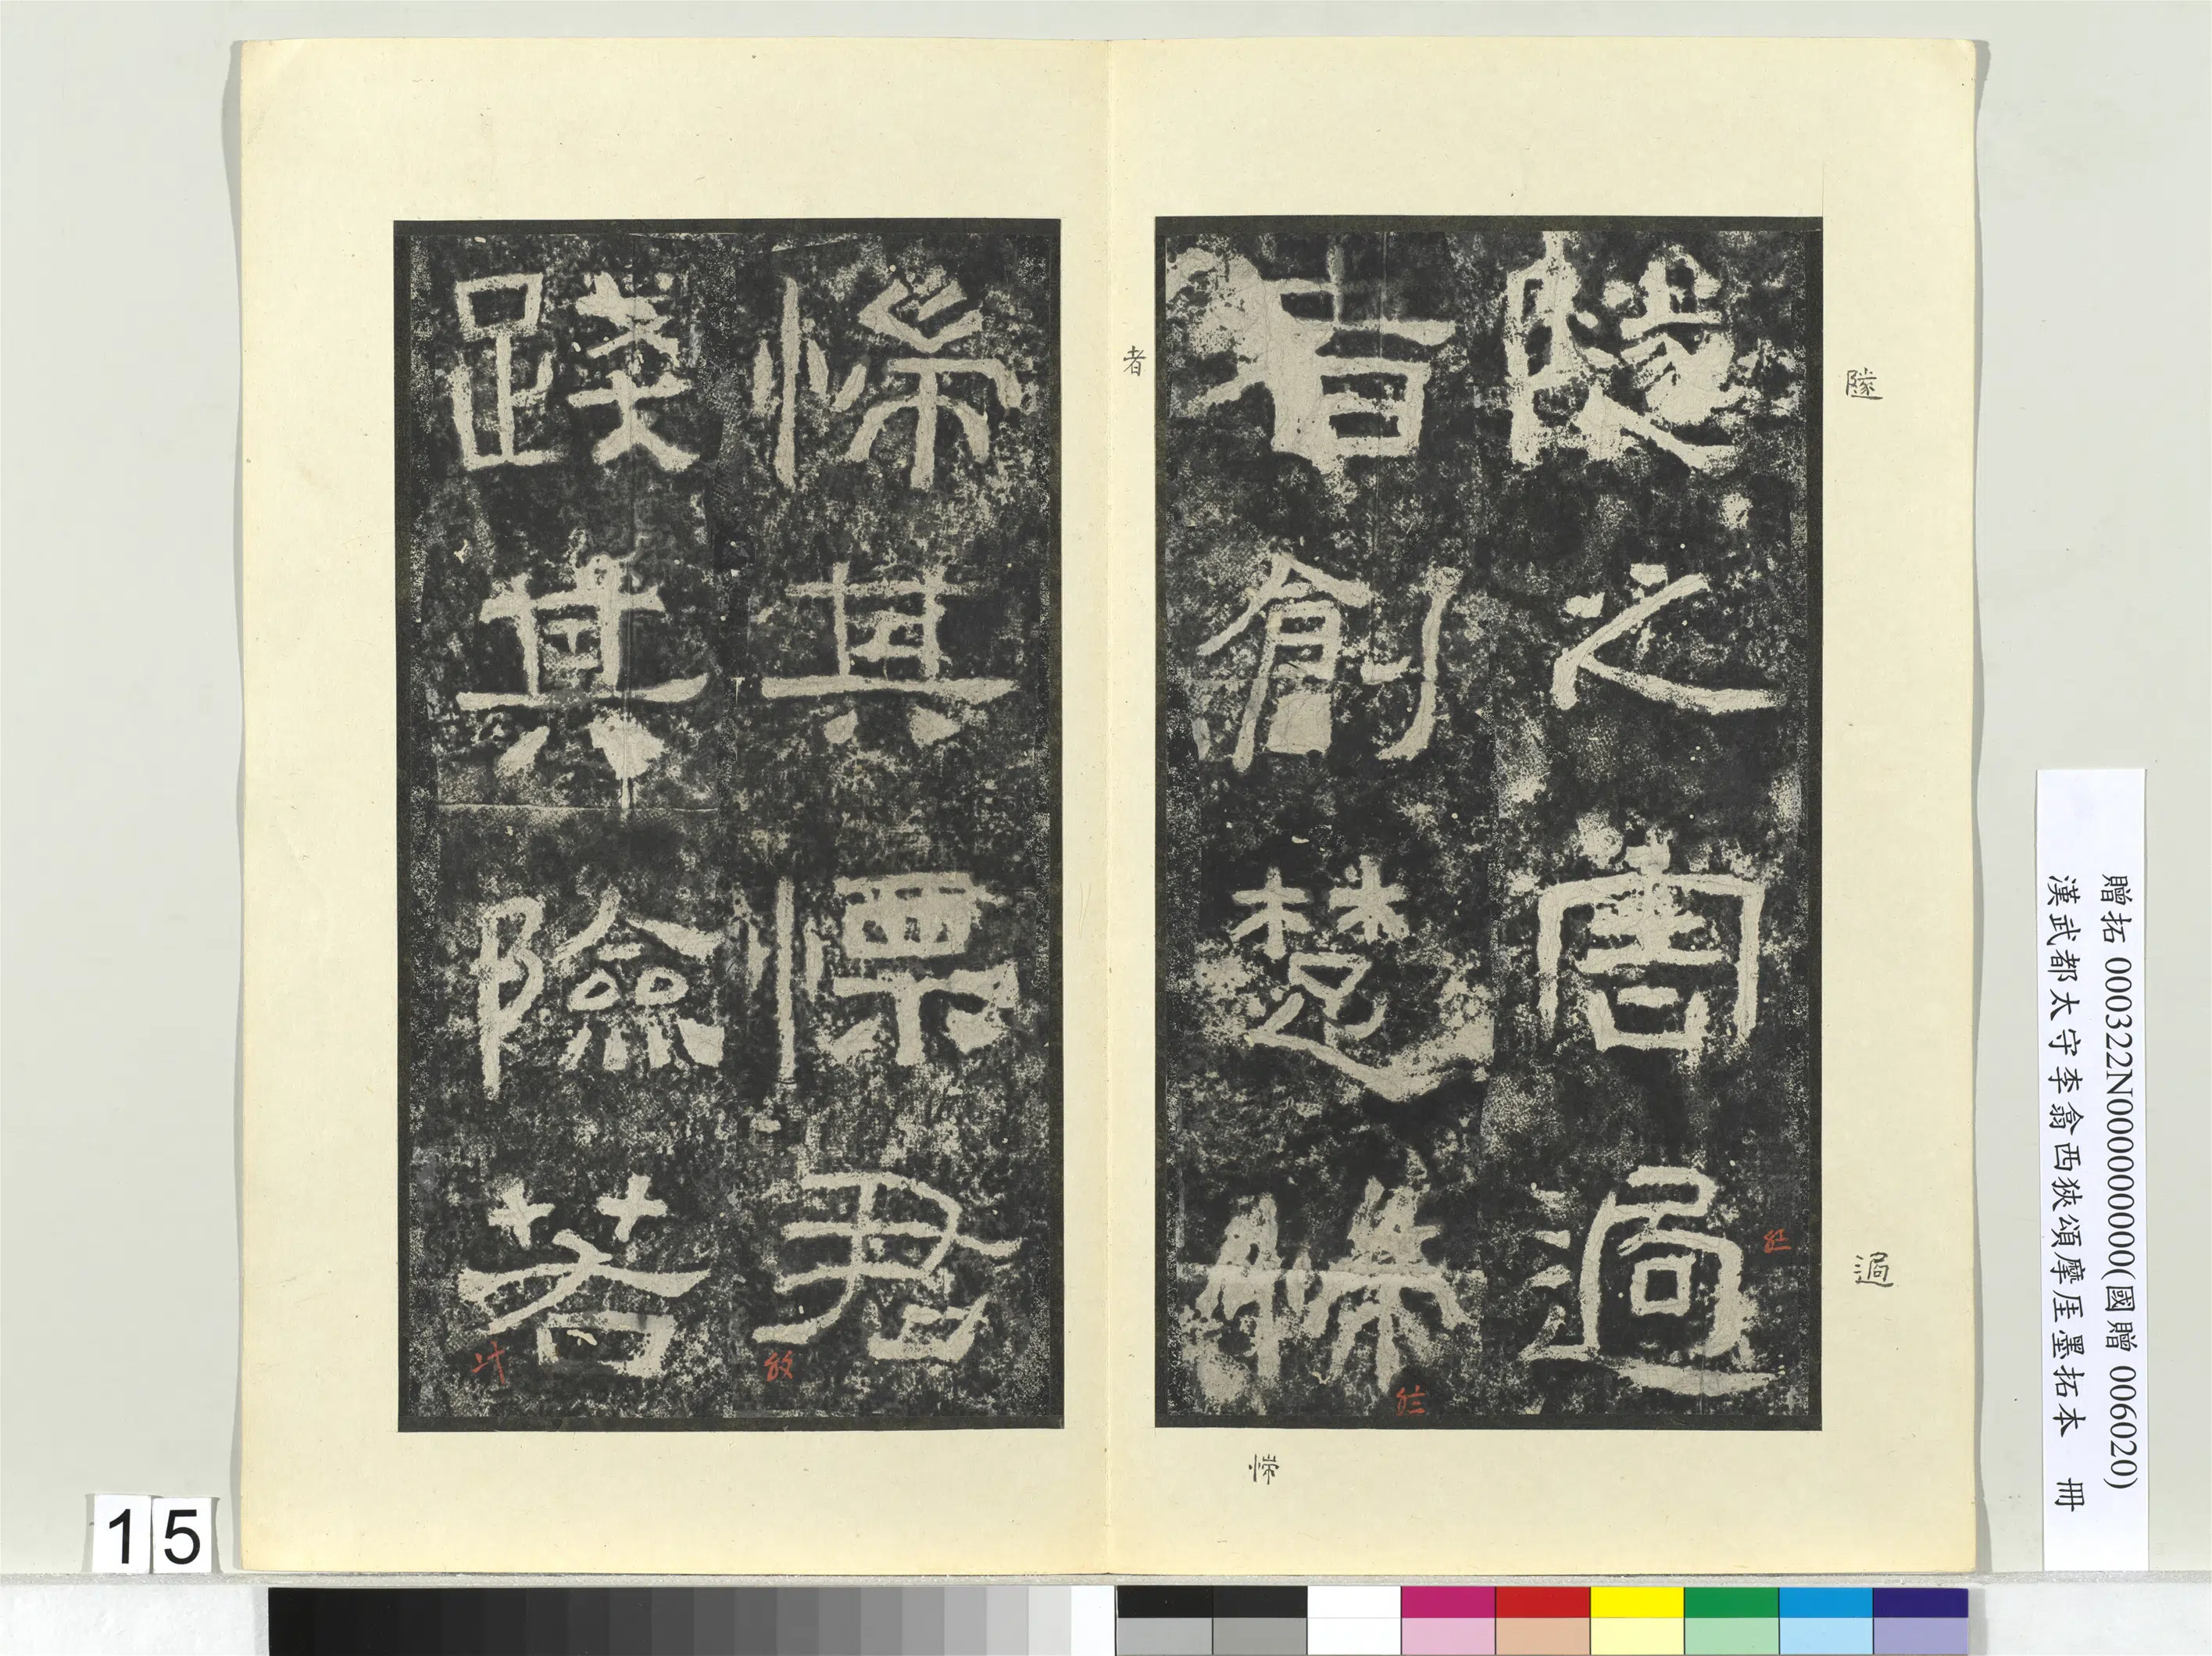 隧之害過
者創楚惴
惴其慄君
踐其險若
隧
過
者
惴
贈拓 000322N000000000(國贈 006020)
漢武都太守李翕西狹頌摩厓墨拓本 冊
15